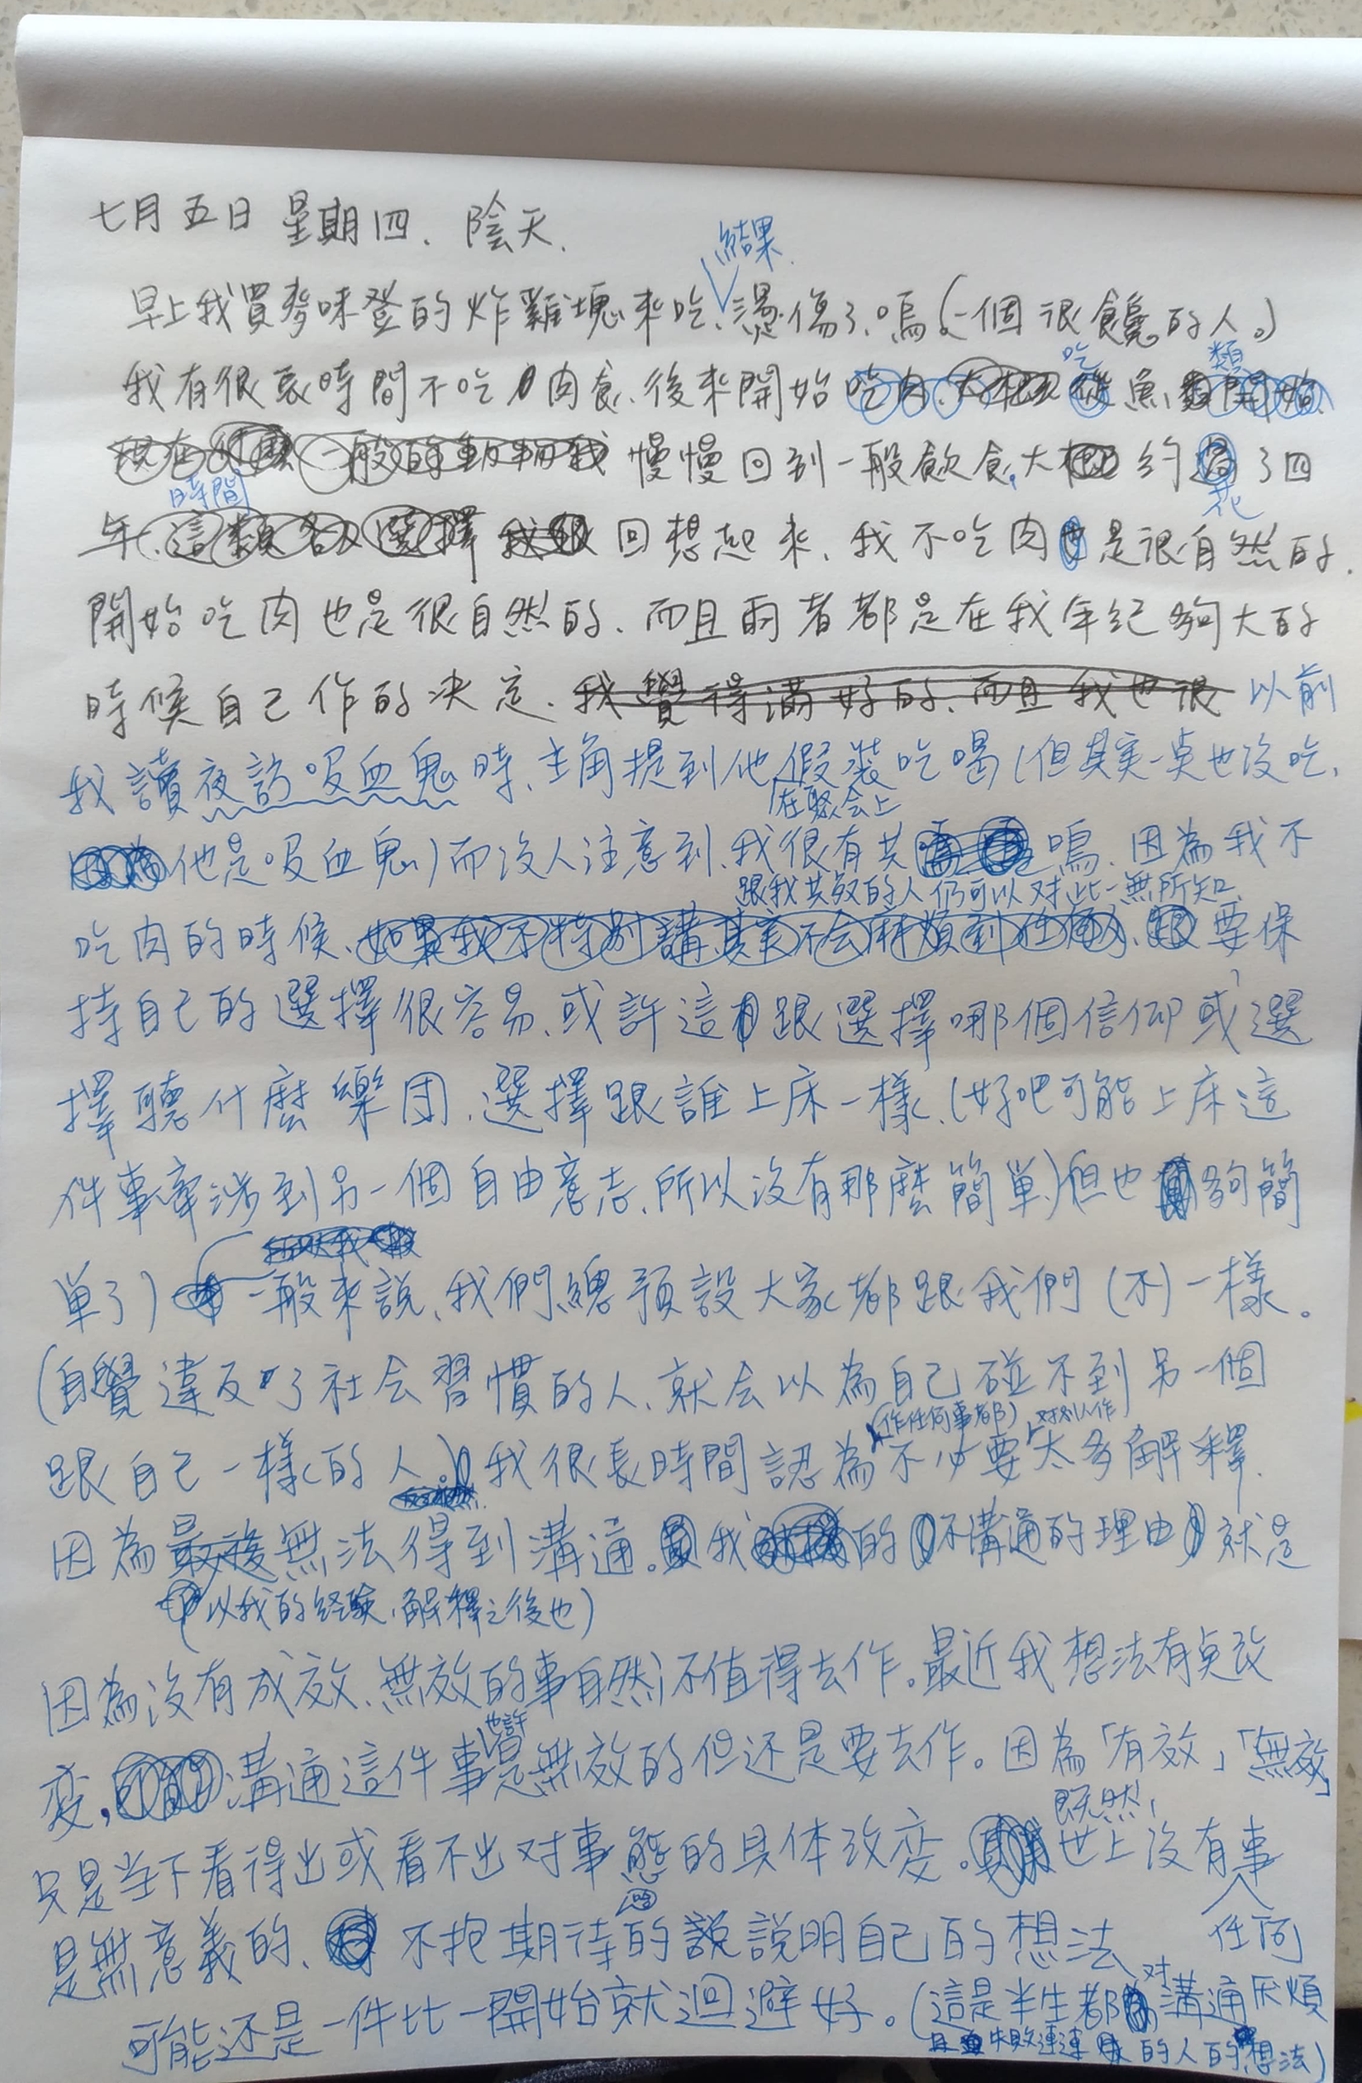 七月五日 星期四、陰天、
結果
早上我買麥味登的炸雞塊來吃、燙傷了、嗚(一個很饞的人。)
吃 類
我有很長時間不吃肉食、後來開始 魚
慢慢回到一般飲食,大約 了四
時間 花
年、 回想起來、我不吃肉 是很自然的、
開始吃肉也是很自然的、而且兩者都是在我年紀夠大的
時候自己作的決定、我覺得滿好的、而且我也很 以前
我讀夜訪吸血鬼時、主角提到他假裝吃喝(但其實一点也沒吃,
在聚会上
他是吸血鬼)而沒人注意到、我很有共鳴、因為我不
跟我共餐的人仍可以对此一無所知、
吃肉的時候、如果我不特別講、其實不会麻煩到任何人、要保
持自己的選擇很容易、或許這跟選擇哪個信仰或選
擇聽什麼樂団、選擇跟誰上床一樣、(好吧可能上床這
件事牽涉到另一個自由意志、所以沒有那麼簡單)但也夠簡
單了)一般來說、我們總預設大家都跟我們(不)一樣。
(自覺違反了社会習慣的人、就会以為自己碰不到另一個
(作任何事都) 对別人作
跟自己一樣的人。)我很長時間認為不必要太多解釋、
因為最後無法得到溝通。我 的 不溝通的理由 就是
(以我的経験、解釋之後也)
因為沒有成效、無效的事自然不值得去作。最近我想法有点改
也許
变, 溝通這件事是無效的但还是要去作。因為「有效」「無效」
既然,
只是当下看得出或看不出对事態的具体改变。 世上沒有事
任何
是無意義的、 不抱期待的說說明自己的想法
可能还是一件比一開始就迴避好。(這是半生都 对 溝通厌煩
且 失敗連連 的人的想法)